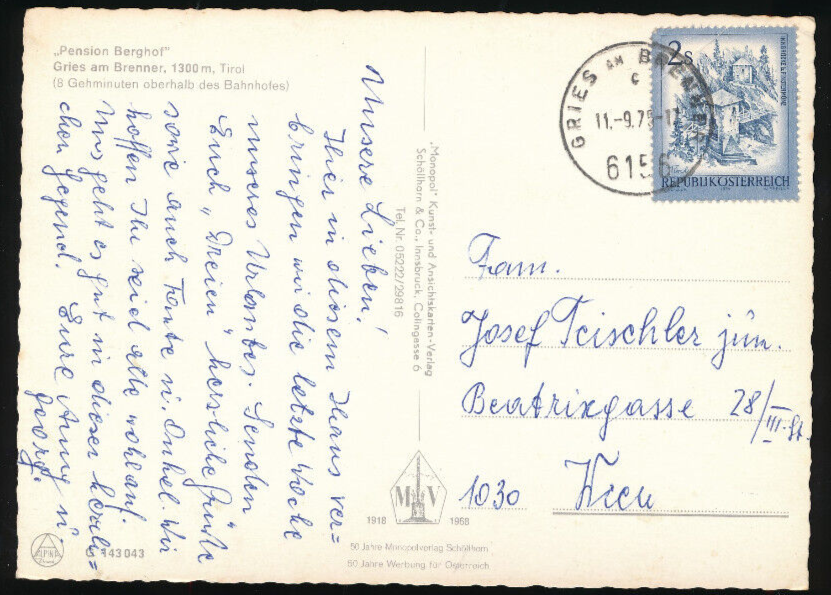 „Pension Berghof"
Gries am Brenner, 1300 m, Tirol
(8 Gehminuten oberhalb des Bahnhofes)
Unsere Lieben!
Hier in diesem Haus ver=
bringen wir die letzte Woche
unseres Urlaubes. Senden
Euch „Dreien" herzliche Grüße
sowie auch Tante u. Onkel. Wir
hoffen Ihr seid alle wohlauf.
Uns geht es gut in dieser herrli=
chen Gegend. Eure Anny u.
Georg.
„Monopol" Kunst- und Ansichtskarten-Verlag
Schöllhorn & Co., Innsbruck, Colingasse 6
Tel. Nr. 05222/29816
GRIES AM BRENNER
c
11.-9.75-17
6156
2 S
REPUBLIK ÖSTERREICH
Fam.
Josef Teischler jun.
Beatrixgasse 28/III. St.
1030 Wien
M V
1918 1968
50 Jahre Monopolverlag Schöllhorn
50 Jahre Werbung für Österreich
ALPINA
143043